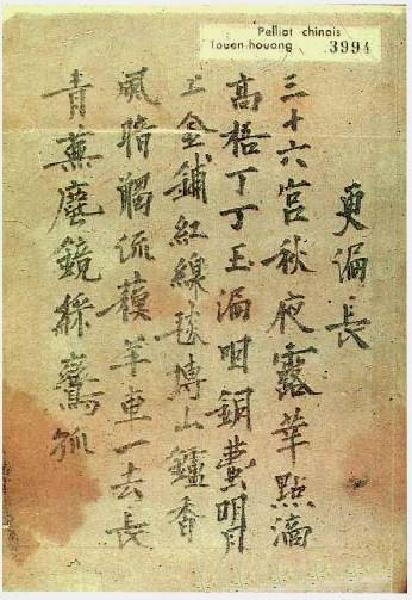 Pelliot chinois
Touen-houang 3994
更漏長
三十六宮秋夜露華點滴
高梧丁丁玉漏咽銅壺明月
上金鋪紅線毯博山鑪香
風暗觸流蘓羊車一去長
青蕪塵鏡綵鸞孤